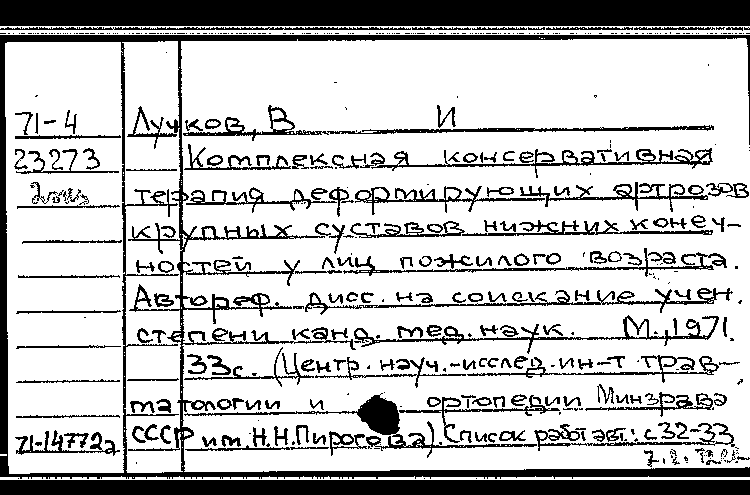 71-4 Лучков, В И
23273 Комплексная консервативная
терапия деформирующих артрозов
крупных суставов нижних конеч-
ностей у лиц пожилого возраста.
Автореф. дисс. на соискание учен.
степени канд. мед. наук. М., 1971.
33с. (Центр. науч.-исслед. ин-т трав-
матологии и ортопедии Минзрава
71-14772а СССР им. Н.Н.Пирогова). Список работ авт.: с 32-33